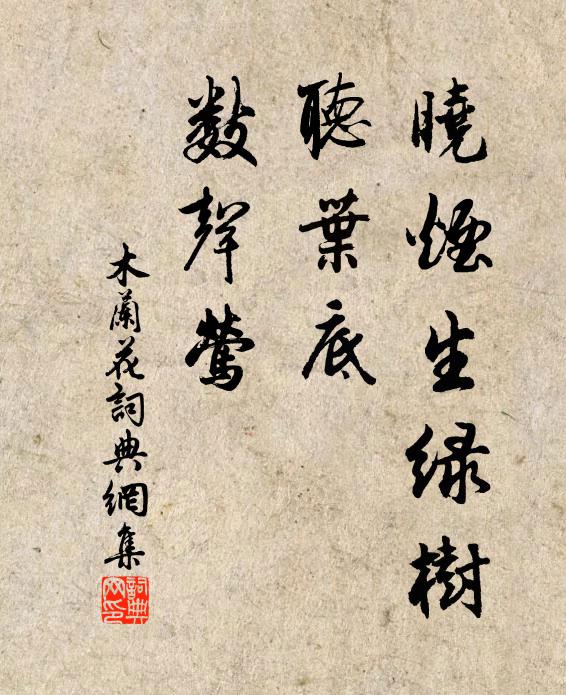 曉煙生綠樹
聽葉底
數聲鶯
木蘭花詞典網集
詞典
网印